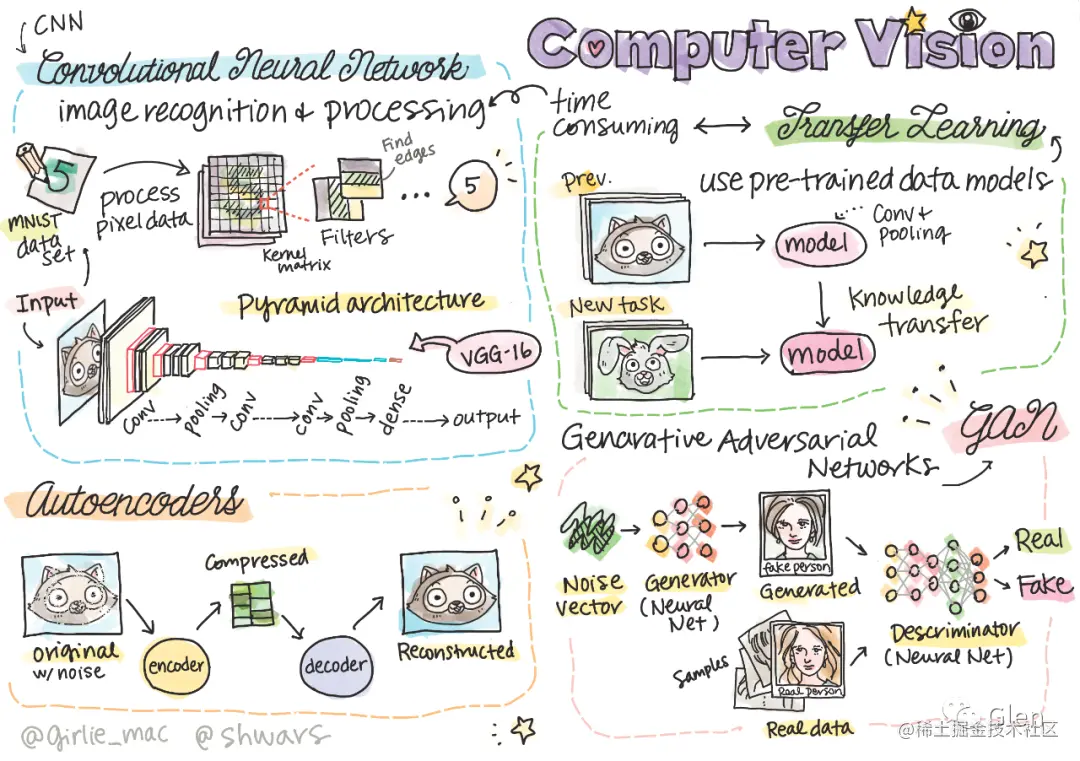 Computer Vision
CNN
Convolutional Neural Network
image recognition & processing
time
consuming
5
MNIST
data
set
process
pixel data
Kernel
matrix
Find
edges
Filters
...
5
Input
Pyramid architecture
VGG-16
conv
pooling
conv
conv
pooling
dense
output
Transfer Learning
use pre-trained data models
Prev.
model
Conv +
pooling
New task
Knowledge
transfer
model
Autoencoders
original
w/ noise
encoder
Compressed
decoder
Reconstructed
GAN
Generative Adversarial
Networks
Noise
vector
Generator
(Neural
Net)
fake person
Generated
Samples
Real person
Real data
Descriminator
(Neural Net)
Real
Fake
@girlie_mac @shwars
Glen
@稀土掘金技术社区